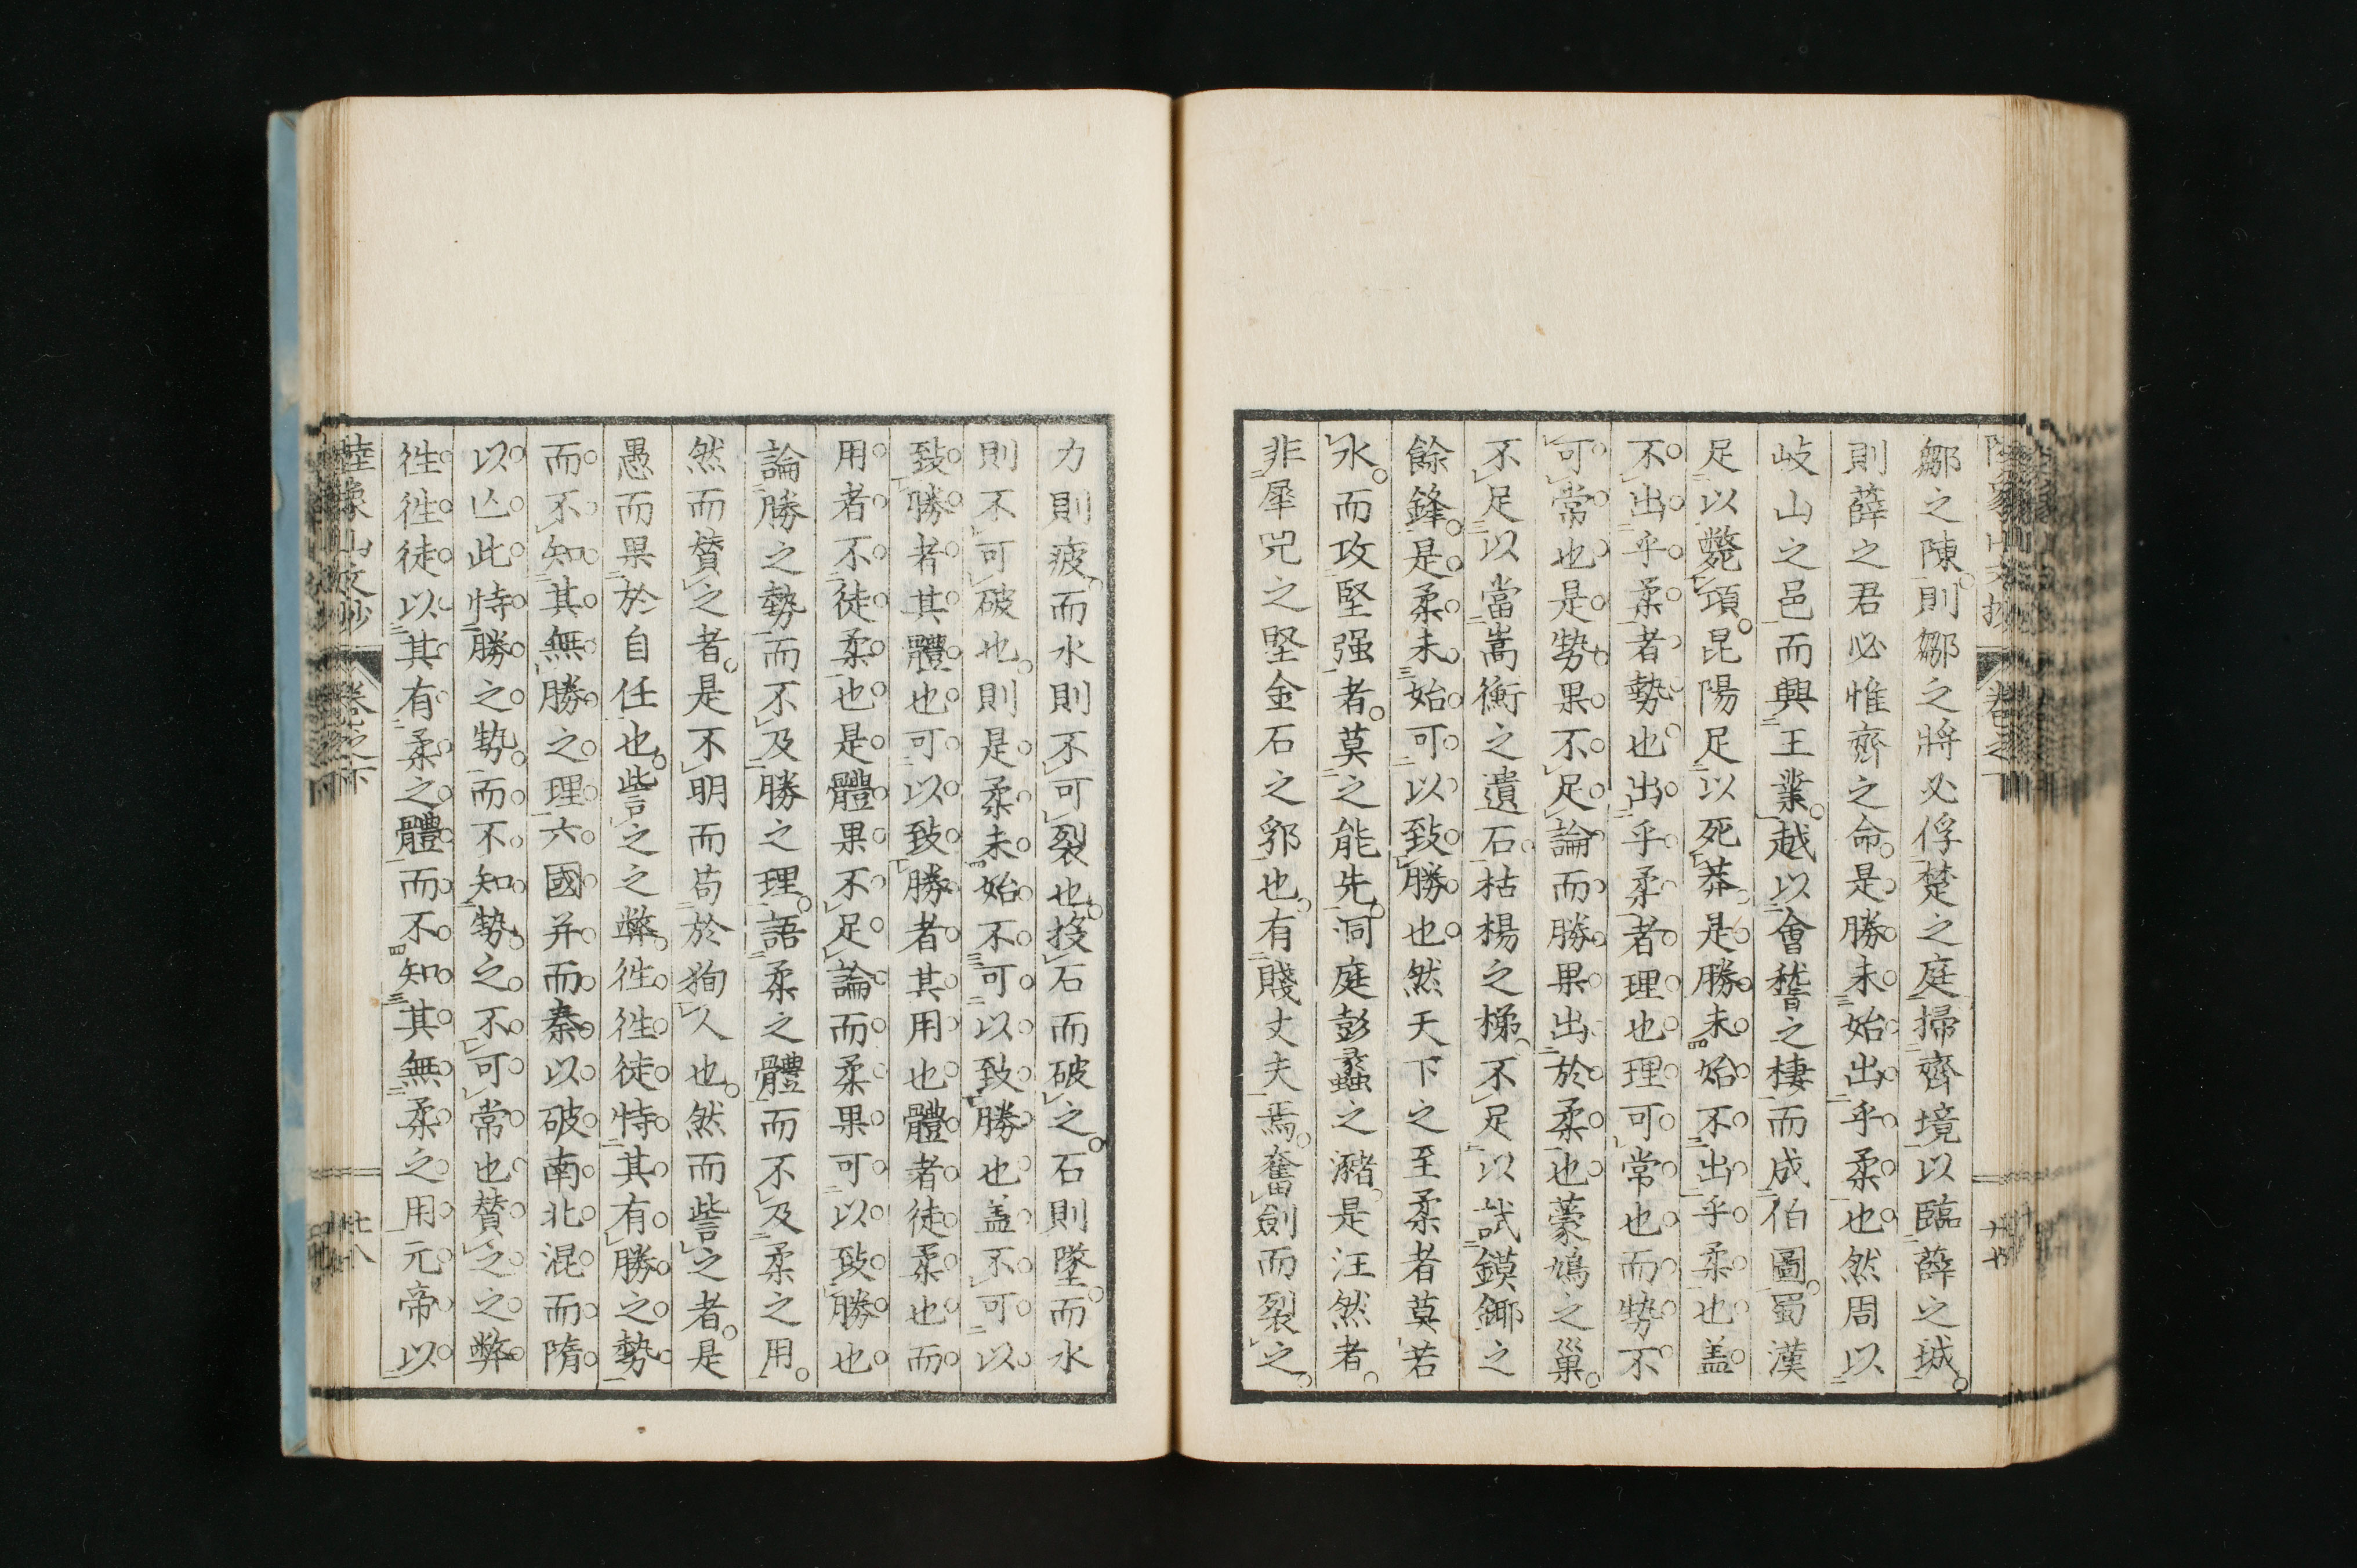 鄒之陳則鄒之將必俘楚之庭掃齊境以臨薛之城
則薛之君必惟齊之命是勝未始出乎柔也然周以
岐山之邑而興王業越以會稽之棲而成伯圖蜀漢
足以斃項昆陽足以死莽是勝未始不出乎柔也盖
不出乎柔者勢也出乎柔者理也理可常也而勢不
可常也是勢果不足論而勝果出於柔也蒙鳩之巢
不足以當嵩衡之遺石枯楊之梯不足以試鏌鎁之
餘鋒是柔未始可以致勝也然天下之至柔者莫若
水而攻堅强者莫之能先洞庭彭蠡之瀦是汪然者
非犀兕之堅金石之郛也有賤丈夫焉奮劍而裂之
力則疲而水則不可裂也投石而破之石則墜而水
則不可破也則是柔未始不可以致勝也盖不可以
致勝者其體也可以致勝者其用也體者徒柔也而
用者不徒柔也是體果不足論而柔果可以致勝也
論勝之勢而不及勝之理語柔之體而不及柔之用
然而賛之者是不明而苟於狥人也然而訾之者是
愚而果於自任也訾之之弊徃徃徒恃其有勝之勢
而不知其無勝之理六國并而秦以破南北混而隋
以亾此恃勝之勢而不知勢之不可常也賛之之弊
徃徃徒以其有柔之體而不知其無柔之用元帝以
陸象山文抄 卷之下